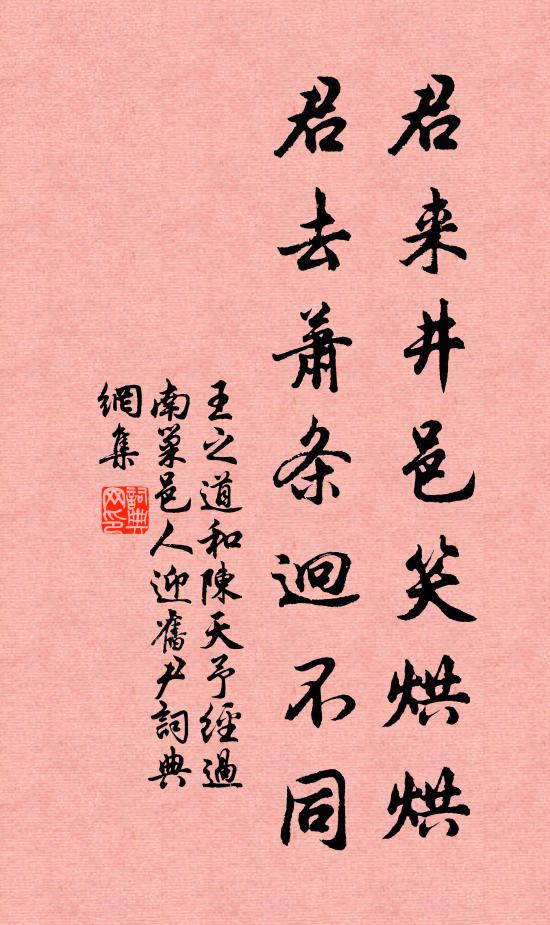 君来井邑笑烘烘
君去蕭条迥不同
王之道和陳天予經過
南巢邑人迎舊尹詞典
網集
詞典
网印